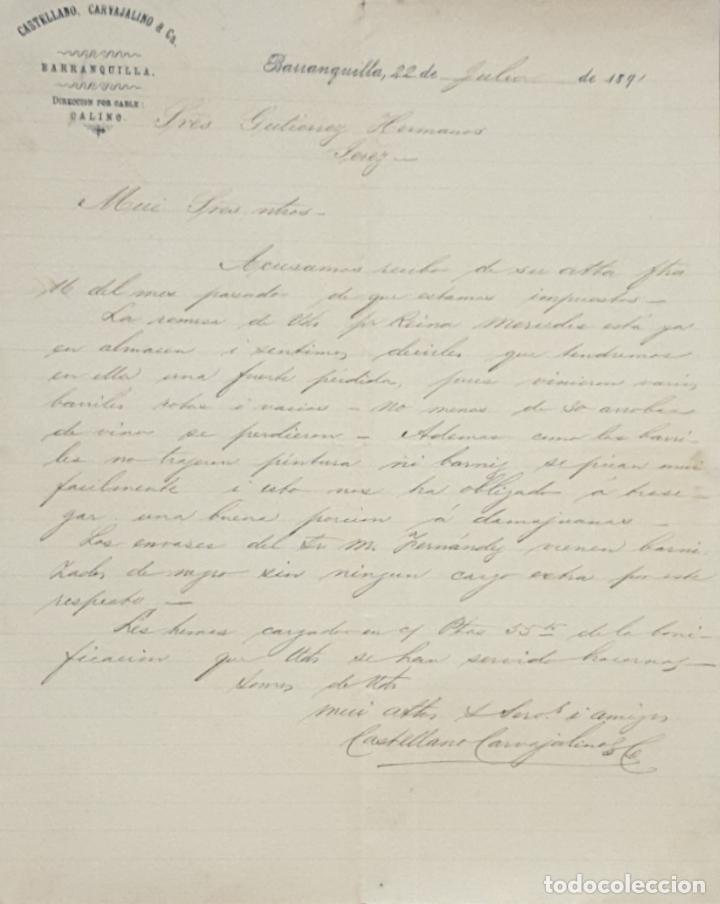 CASTELLANO, CARVAJALINO & Co.
BARRANQUILLA.
DIRECCION POR CABLE:
CALINO.
Barranquilla, 22 de Julio de 1891
Sres Gutierrez Hermanos
Jerez
Mui Sres ntros
Acusamos recibo de su atta fha
16 del mes pasado de que estamos impuestos —
La remesa de Uds pr Reina Mercedes está ya
en almacen i sentimos decirles que tendremos
en ella una fuerte pérdida, pues vinieron varios
barriles rotos i vacios — No menos de 30 arrobas
de vino se perdieron — Ademas como los barri-
les no trajeron pintura ni barniz se pican mui
facilmente i esto nos ha obligado á trase-
gar una buena porcion á damajuanas —
Los envases del Sr M. Fernández vienen barni-
zados de negro sin ningun cargo extra por este
respecto —
Les hemos cargado en c/ Ptas 55 de la boni-
ficacion que Uds se han servido hacernos —
Somos de Uds
mui attos S Servs i amigos
Castellano Carvajalino & Co
todocoleccion